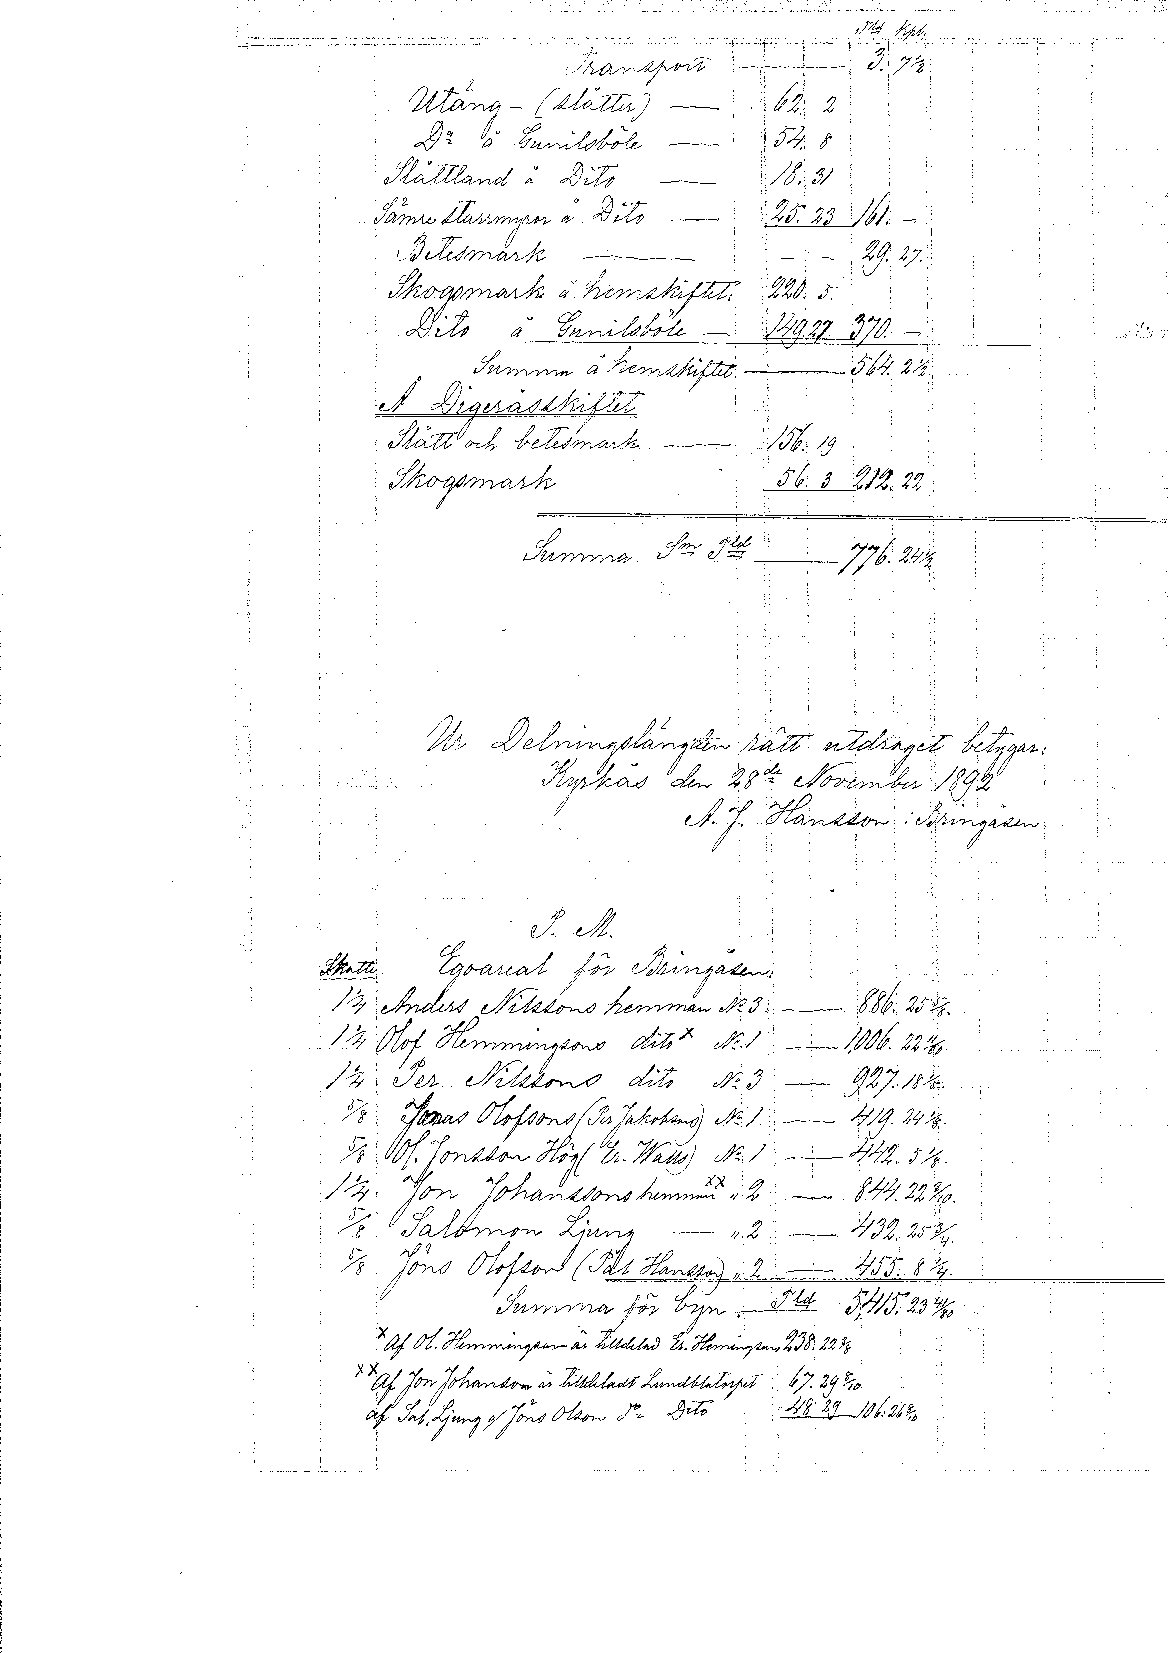 Tld Kpl.
Transport — 3. 7½
Utäng – (slåtter) — 62. 2
Do å Gunilsböle — 54. 8
Slåttland å Dito — 18. 31
Sämre Starrmyror å Dito — 25. 23 161. –
Betesmark — – – 29. 27.
Skogsmark å hemskiftet. 220. 5.
Dito å Gunilsböle — 149 27. 370. –
Summa å hemskiftet. — 564. 2½
A Digeråsskiftet
Slått och betesmark — 156. 19
Skogsmark 56. 3 212. 22
Summa Sm Tld — 776. 24½
Ur Delningslängden rätt utdraget betygar:
Kyrkås den 28de November 1892
A. J. Hansson i Bringåsen.
P. M.
Skatte Egoareal för Bringåsen.
1¼ Anders Nilssons hemman No 3 — 886. 25
1¼ Olof Hemmingsons dito x No 1 — 1,006. 22
1¼ Per Nilssons dito No 3 — 927. 18
5/8 Jonas Olofsons (Per Jakobsons) No 1 — 419. 24
5/8 Ol. Jonsson Hög (Er. Walls) No 1 — 442. 5
1¼. Jon Johanssons hemman xx " 2 — 844. 22
5/8 Salomon Ljung — " 2 — 432. 25 ¾.
5/8 Jöns Olofson (Pål Hansson) " 2 — 455. 8 ¼.
Summa för byn. Tld 5,415. 23
x Af Ol. Hemmingson är tilldelad Er. Hemingson 238. 22
xx Af Jon Johanson är tilldeladt Lundbletorpet 67. 29
af Sal. Ljung & Jöns Olson do Dito 48. 29 106. 26